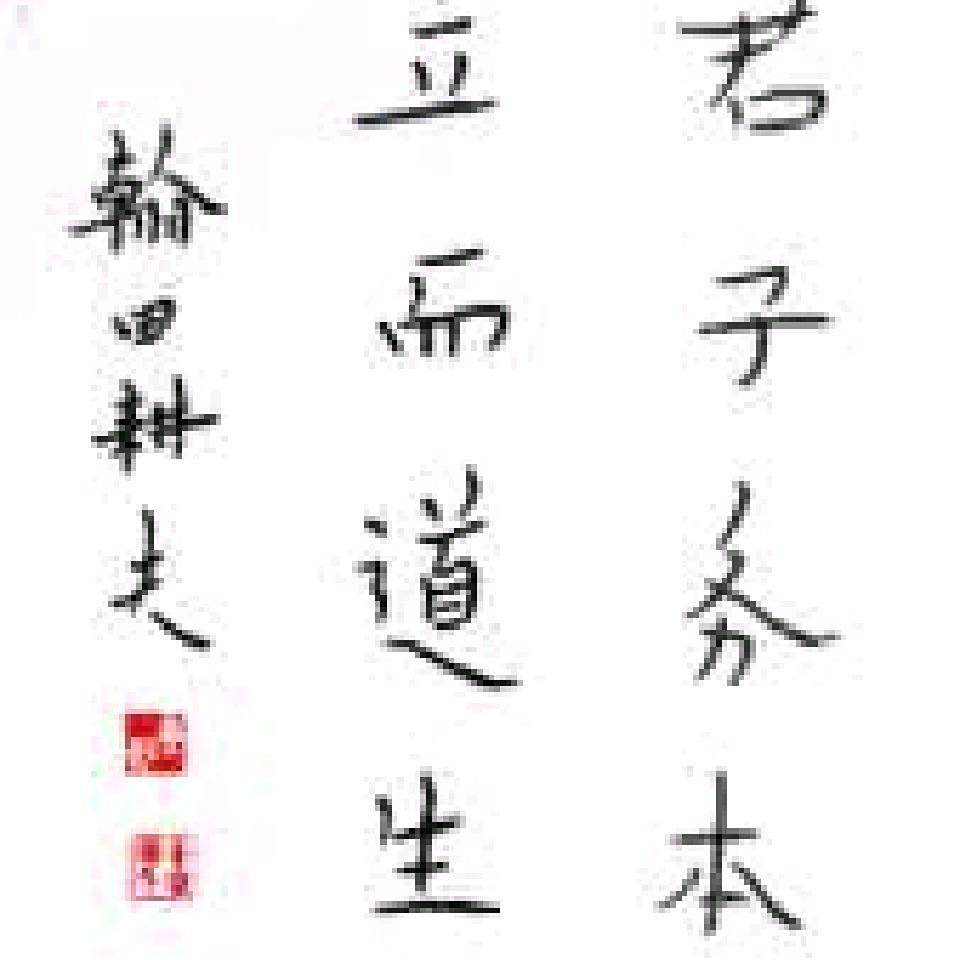 君子务本
立而道生
翰田耕夫